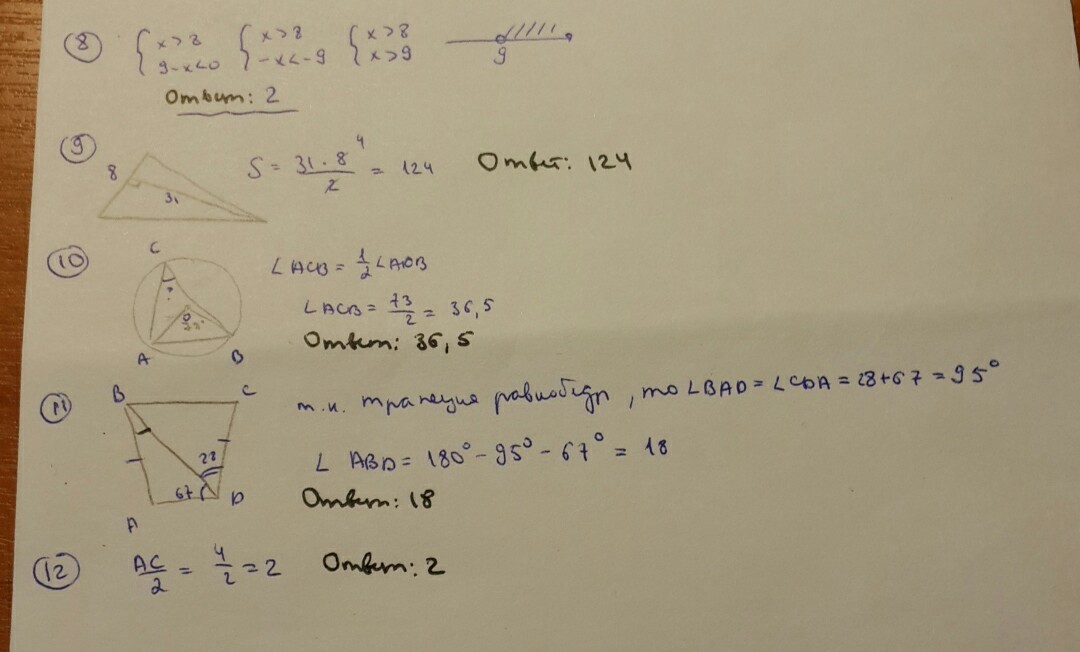 8 { x>8 { x>8 { x>8
9-x<0 -x<-9 x>9 9
Ответ: 2
9 8 31 S = 31·8⁴/2 = 124 Ответ: 124
10 C ? O A B ∠ACB = 1/2 ∠AOB
∠ACB = 73/2 = 36,5
Ответ: 36,5
11 B C т.к. трапеция равнобедр, то ∠BAD = ∠CDA = 28+67 = 95°
28 67 A D ∠ ABD = 180° - 95° - 67° = 18
Ответ: 18
12 AC/2 = 4/2 = 2 Ответ: 2